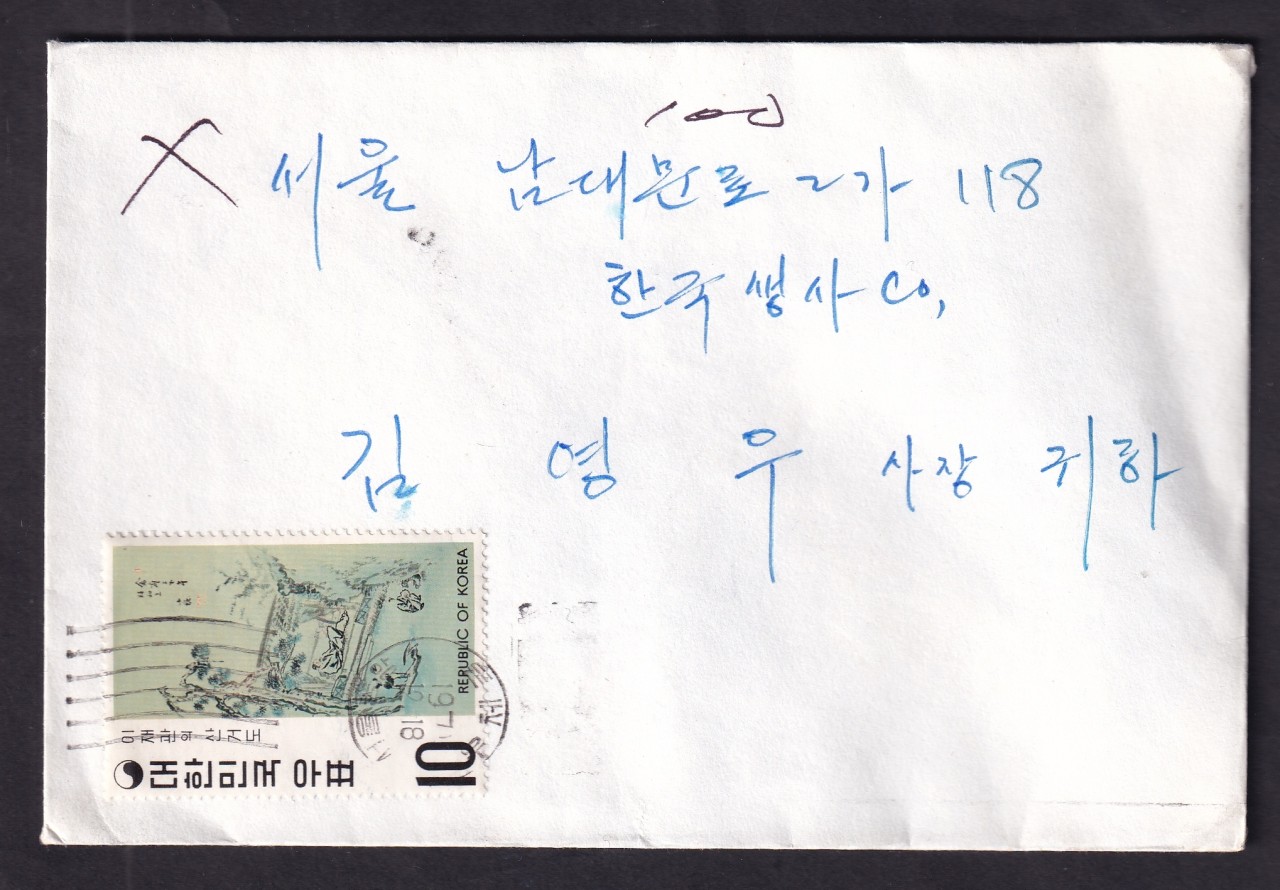 100
서울 남대문로 2가 118
한국생사 Co,
김 영 우 사장 귀하
REPUBLIC OF KOREA
이재관의 산거도
대한민국 우표
10
197
12
18
서울